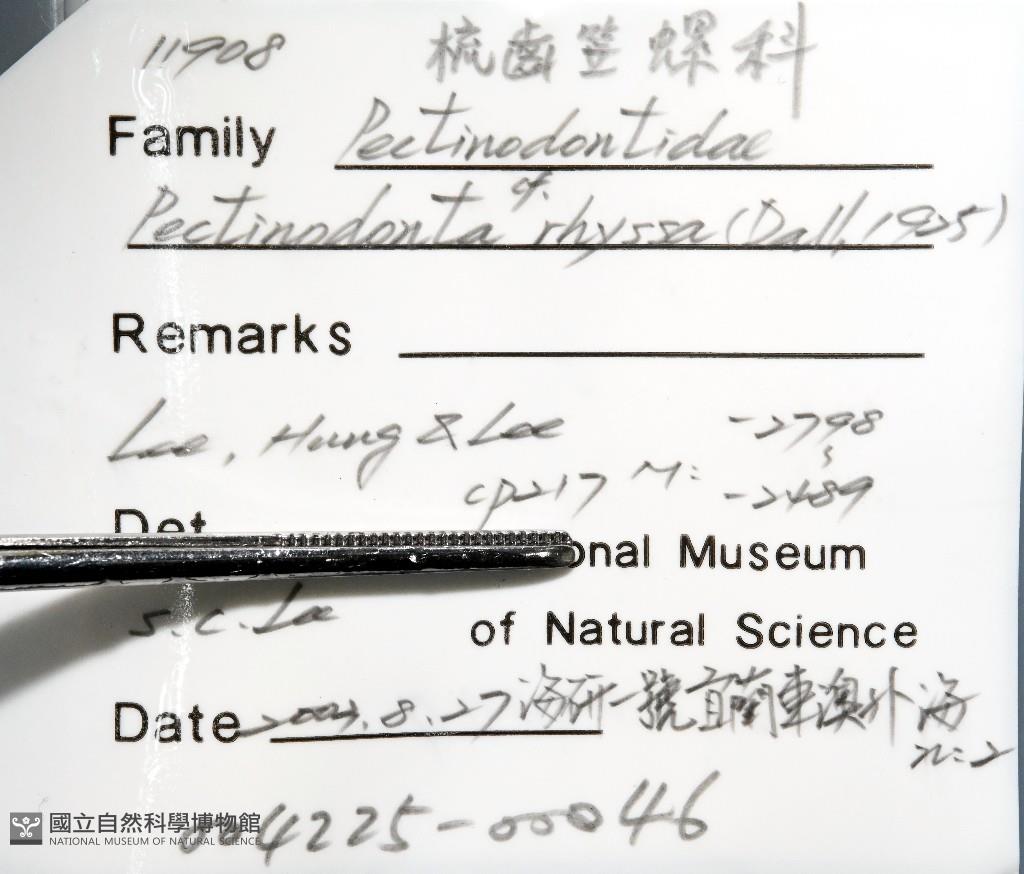 11908 梳齒笠螺科
Family Pectinodontidae
cf.
Pectinodonta rhyssa (Dall, 1925)
Remarks
Lee, Hung & Lee -2798
cp217 M: -2489
Det
onal Museum
S.C. Lee
of Natural Science
Date 8.27 海研一號宜蘭東澳外海
n=2
4225-00046
國立自然科學博物館
NATIONAL MUSEUM OF NATURAL SCIENCE